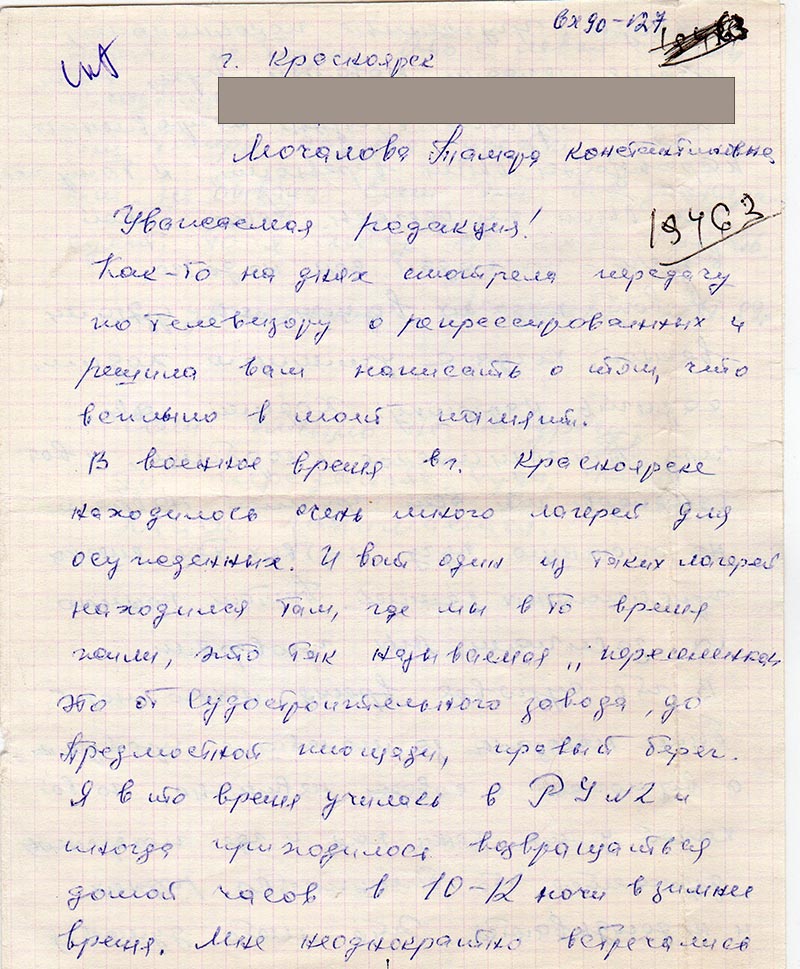 вх90-127
г. Красноярск
Мочалова Тамара Константиновна
19463
Уважаемая редакция!
Как-то на днях смотрела передачу
по телевизору о репрессированных и
решила вам написать о том, что
всплыло в моей памяти.
В военное время в г. Красноярске
находилось очень много лагерей для
осужденных. И вот один из таких лагерей
находился там, где мы в то время
жили, это так называемая „пересыленкой
это от Судостроительного завода, до
Предмостной площади, правый берег.
Я в то время училась в РУ N2 и
иногда приходилось возвращаться
домой часов в 10-12 ночи в зимнее
время. Мне неоднократно встречались